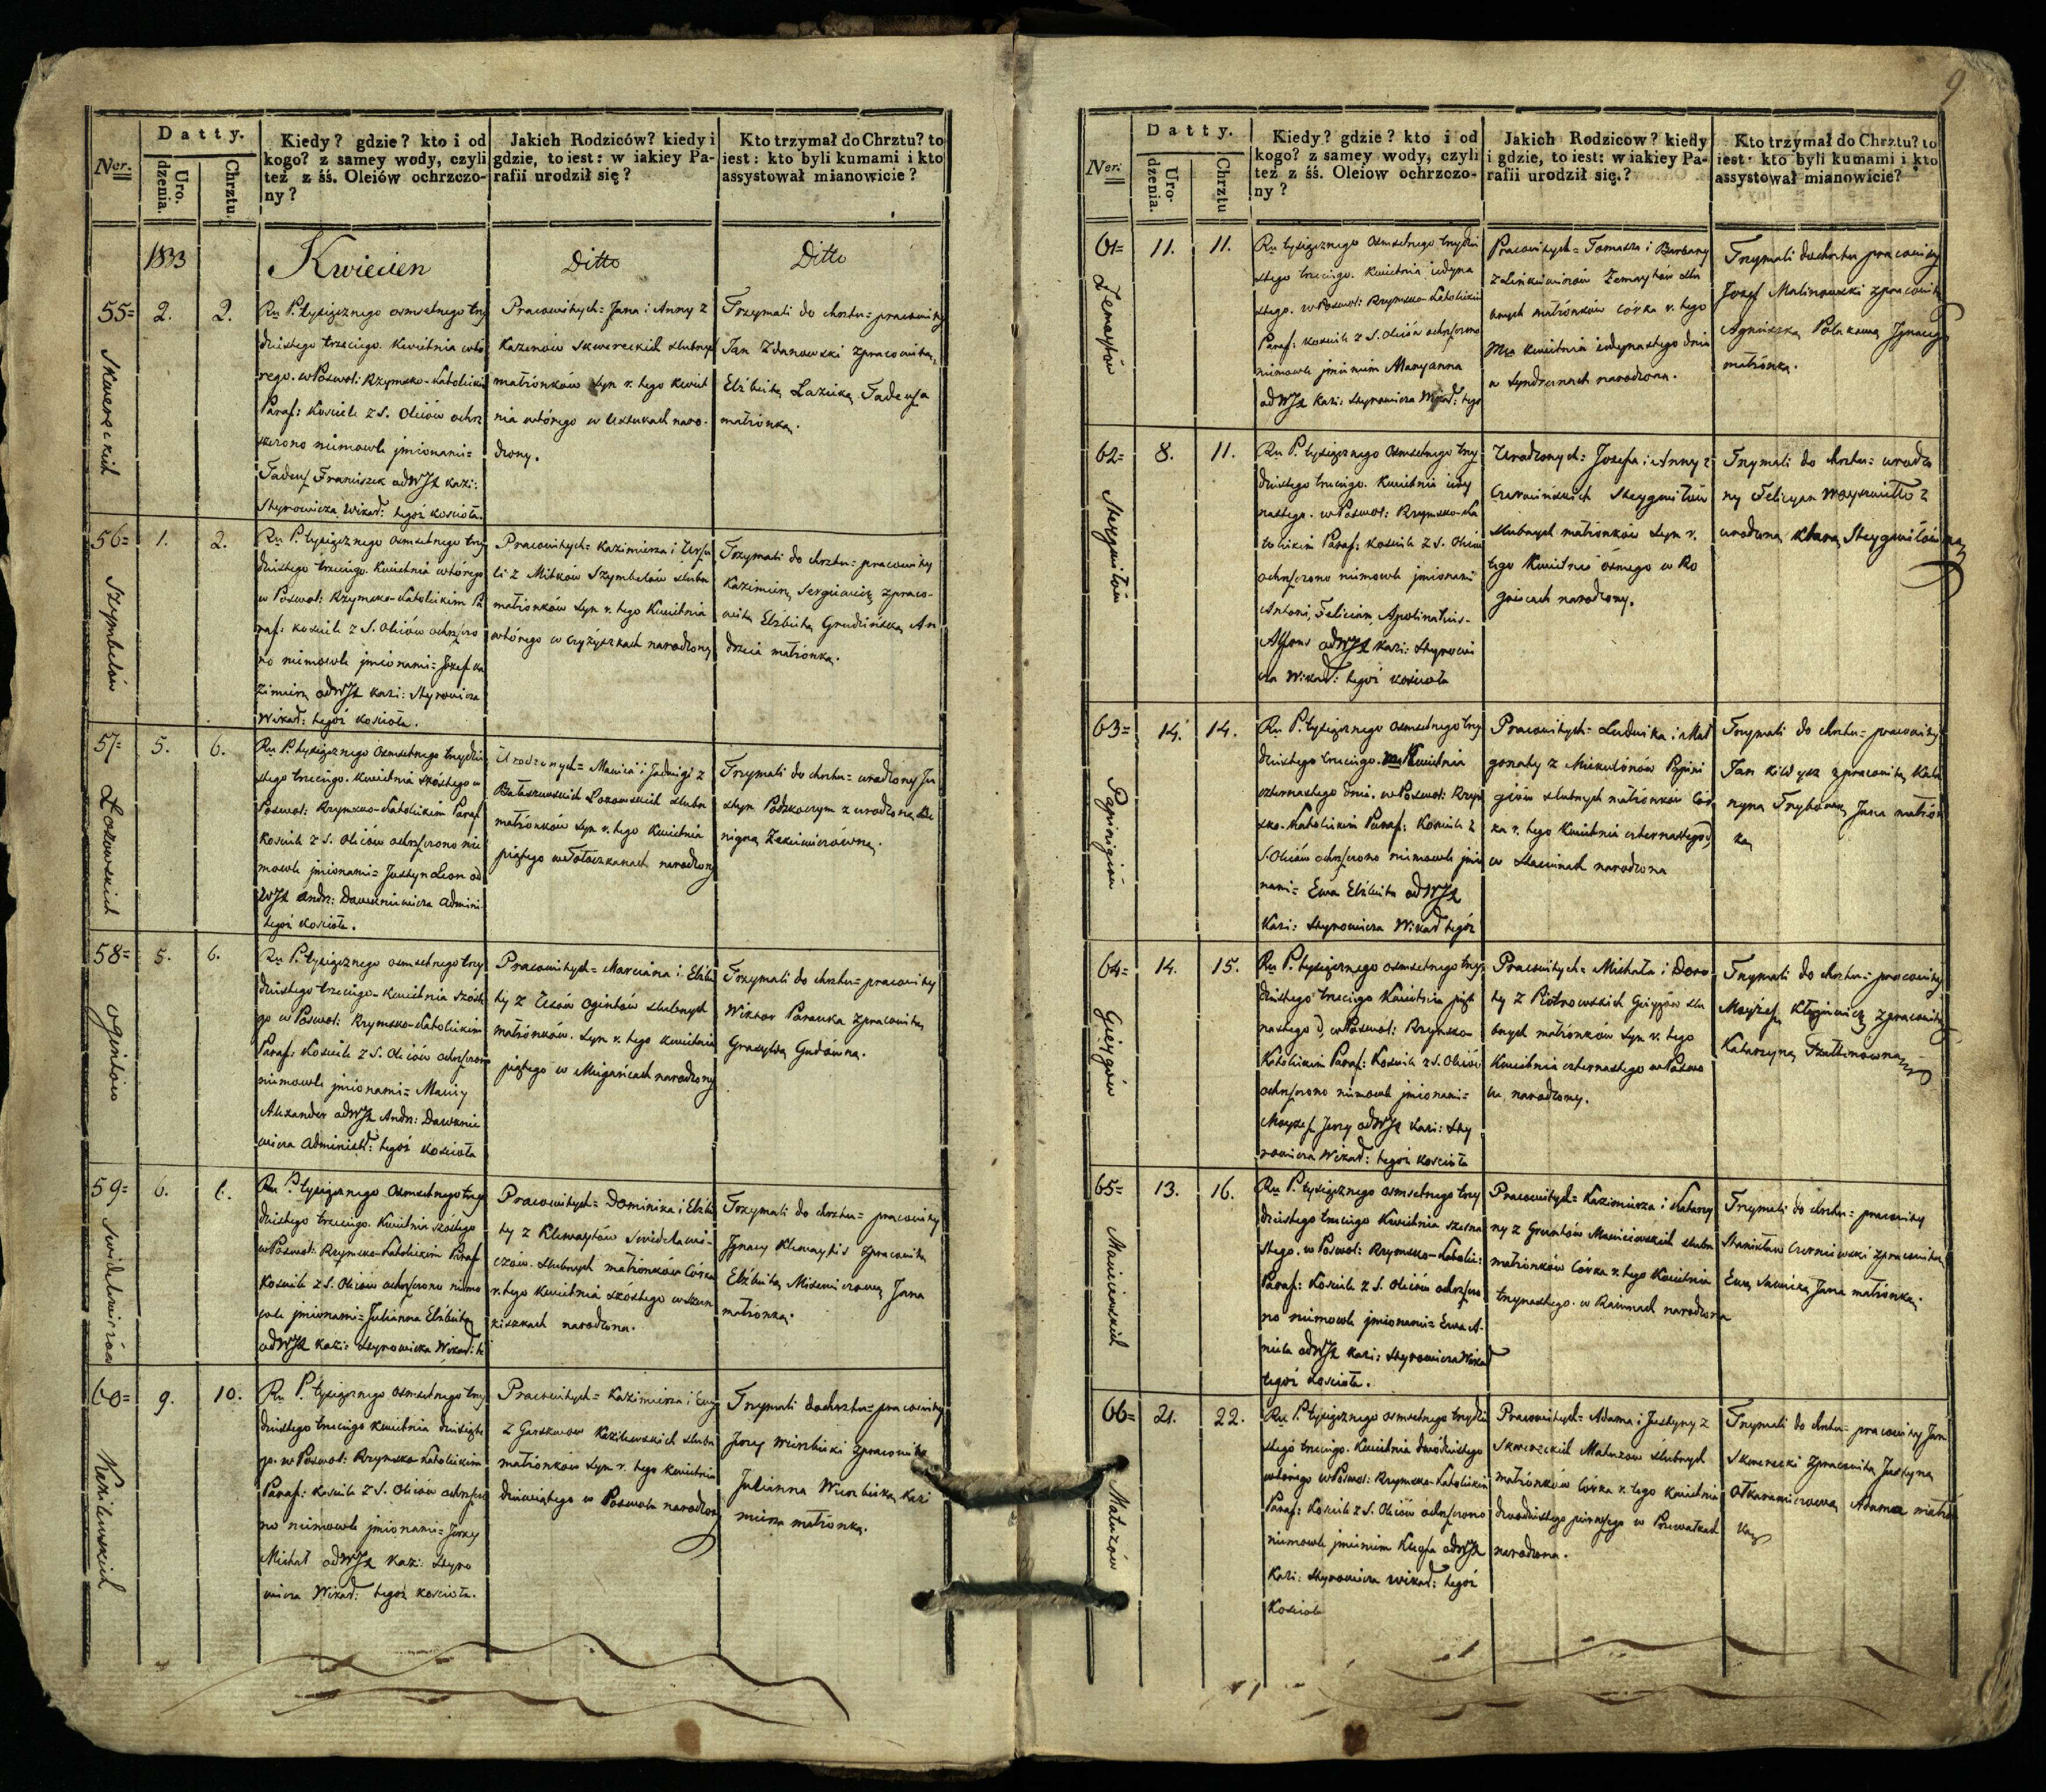 Ner.
Datty.
Uro.
dzenia.
Chrztu.
Kiedy? gdzie? kto i od
kogo? z samey wody, czyli
też z śś. Oleiów ochrzczo-
ny?
Jakich Rodziców? kiedy i
gdzie, to iest: w iakiey Pa-
rafii urodził się?
Kto trzymał do Chrztu? to
iest: kto byli kumami i kto
assystował mianowicie?
1833
Kwiecień
Ditto
Ditto
55=
Skwereckich
2.
2.
Ru P. tysiącznego osmsetnego trzy
dziestego trzeciego. Kwietnia wtó
rego. w Poswol: Rzymsko-Katolickim
Paraf: Kosciele z S. Oleiów ochrz
szczono niemowle jmionami=
Tadeusz Franciszek od WJX Kazi:
Styrowicza Wikar: tegoż Kościoła.
Pracowitych= Jana i Anny z
Kazenów Skwereckich slubnych
małżonków Syn r. tego Kwiet
nia wtórego w naro-
dzony.
Trzymali do chrztu= pracowity
Jan Zdanowski z pracowitą
Elżbietą Łazicką Tadeusza
małżonką.
56=
Szymbelów
1.
2.
Ru P. tysiącznego osmsetnego trzy
dziestego trzeciego. Kwietnia wtórego
w Poswol: Rzymsko-Katolickim Pa
raf: Kosciele z S. Oleiów ochrzszczo
no niemowle jmionami= Jozef Ka
zimierz od WJX Kazi: Styrowicza
Wikar: tegoż Kościoła.
Pracowitych= Kazimierza i Urszu
li z Mitków Szymbelów slubn
małżonków Syn r. tego Kwietnia
wtórego w Czyżyszkach narodzony
Trzymali do chrztu= pracowity
Kazimierz Sergiewicz z praco-
witą Elżbietą Grudzińską An
drzeia małżonką.
57=
Łozowskich
5.
6.
Ru P. tysiącznego osmsetnego trzydzie
stego trzeciego. Kwietnia szóstego w
Poswol: Rzymsko-Katolickim Paraf
Kosciele z S. Oleiów ochrzszczono nie
mowle jmionami= Justyn Leon od
WJX Andr: Dawkniewicza Admini
tegoż Kościoła.
Urodzonych= Macieia i Jadwigi z
Białaszewskich Łozowskich slubn
małżonków Syn r. tego Kwietnia
piątego w narodzony
Trzymali do chrztu= urodzony Ju
styn z urodzoną Be
nigną Zakiewiczówną.
58=
Ogintów
5.
6.
Ru P. tysiącznego osmsetnego trzy
dziestego trzeciego. Kwietnia szóste
go w Poswol: Rzymsko-Katolickim
Paraf: Kosciele z S. Oleiów ochrzszczono
niemowle jmionami= Maciey
Alexander od WJX Andr: Dawknie
wicza Administr: tegoż Kościoła
Pracowitych= Marciana i Elżbie
ty z Ogintów slubnych
małżonków. Syn r. tego Kwietnia
piątego w narodzony
Trzymali do chrztu= pracowity
Wiktor Parauka z pracowitą
Grasyldą Gudówną.
59=
Swidelewiczów
6.
6.
Ru P. tysiącznego osmsetnego trzy
dziestego trzeciego. Kwietnia szóstego
w Poswol: Rzymsko-Katolickim Paraf
Kosciele z S. Oleiów ochrzszczono niemo
wle jmionami= Julianna Elżbieta
od WJX Kazi: Styrowicza Wikar: te
Pracowitych= Dominika i Elżbie
ty z Klimaytów Swidelewi-
czów. slubnych małżonków Córka
r. tego Kwietnia szóstego w
narodzona.
Trzymali do chrztu= pracowity
Jgnacy Klimaytis z pracowitą
Elżbietą Misiewiczową Jana
małżonką.
60=
Kozilewskich
9.
10.
Ru P. tysiącznego osmsetnego trzy
dziestego trzeciego Kwietnia dziesiąte
go. w Poswol: Rzymsko-Katolickim
Paraf: Kosciele z S. Oleiów ochrzszczo
no niemowle jmionami= Jerzy
Michał od WJX Kazi: Styro
wicza Wikar: tegoż Kościoła.
Pracowitych= Kazimierza i Ewy
z Kozilewskich slubn
małżonków Syn r. tego Kwietnia
dziewiątego w Poswolu narodzony
Trzymali do chrztu= pracowity
Jerzy Wierzbicki z pracowitą
Julianna Wierzbicką Kazi
mierza małżonką.
9
Ner:
Datty.
Uro-
dzenia.
Chrztu
Kiedy? gdzie? kto i od
kogo? z samey wody, czyli
też z śś. Oleiow ochrzczo-
ny?
Jakich Rodzicow? kiedy
i gdzie, to iest: w iakiey Pa-
rafii urodził się.?
Kto trzymał do Chrztu? to
iest: kto byli kumami i kto
assystował mianowicie?
61=
Żemaytów
11.
11.
Ru tysiącznego osmsetnego trzydzie
stego trzeciego. Kwietnia iedyna
stego. w Poswol: Rzymsko-Katolickim
Paraf: Kosciele z S. Oleiów ochrzszczono
niemowle jmieniem Maryanna
od WJX Kazi: Styrowicza Wikar: tego
Pracowitych= Tomasza i Barbary
z Linkiewiczów Żemaytów slu
bnych małżonków Córka r. tego
Mca Kwietnia iedynastego dnia
w narodzona.
Trzymali do chrztu pracowity
Jozef Malinowski z pracowitą
Agnieszką Polakową Jgnacego
małżonką.
62=
Steygwiłów
8.
11.
Ru P. tysiącznego osmsetnego trzy
dziestego trzeciego. Kwietnia iedy
nastego. w Poswol: Rzymsko-Ka
tolickim Paraf: Kosciele z S. Oleiów
ochrzszczono niemowle jmionami
Antoni, Felician, Apolinaruis-
Alfons od WJX Kazi: Styrowi
cza Wikar: tegoż Kościoła
Urodzonych= Jozefa i Anny z
Czerwińskich Steygwiłów
slubnych małżonków Syn r.
tego Kwietnia ósmego w Ro
narodzony.
Trzymali do chrztu= urodzo
ny Felicyan z
urodzoną Klarą Steygwiłówną
63=
Papinigiów
14.
14.
Ru P. tysiącznego osmsetnego trzy
dziestego trzeciego. Kwietnia
czternastego dnia. w Poswol: Rzym
sko-Katolickim Paraf: Kosciele z
S. Oleiów ochrzszczono niemowle jmio
nami= Ewa Elżbieta od WJX
Kazi: Styrowicza Wikar tegoż
Pracowitych= Ludwika i Mał
gorzaty z Mikulónów Papini
giów slubnych małżonków Cór
ka r. tego Kwietnia czternastego d.
w narodzona
Trzymali do chrztu= pracowity
Jan z pracowitą Kata
rzyna Jana małżon
ką
64=
Gieygów
14.
15.
Ru P. tysiącznego osmsetnego trzy
dziestego trzeciego Kwietnia pięt
nastego d, w Poswol: Rzymsko-
Katolickim Paraf: Kosciele z S. Oleiów
ochrzszczono niemowle jmionami=
Mayżesz Jerzy od WJX Kazi: Sty
rowicza Wikar: tegoż Kościoła
Pracowitych= Michała i Doro
ty z Piotrowskich Gieygów slu
bnych małżonków Syn r. tego
Kwietnia czternastego w Poswo
lu narodzony.
Trzymali do chrztu= pracowity
Mayżesz z pracowitą
Katarzyną
65=
Macieiewskich
13.
16.
Ru P. tysiącznego osmsetnego trzy
dziestego trzeciego Kwietnia szesna
stego. w Poswol: Rzymsko-Katolic:
Paraf: Kosciele z S. Oleiów ochrzszczo
no niemowle jmionami= Ewa A-
niela od WJX Kazi: Styrowicza Wikar
tegoż Kościoła.
Pracowitych= Kazimierza i Katarzy
ny z Macieiewskich slubn
małżonków Córka r. tego Kwietnia
trzynastego. w narodzona
Trzymali do chrztu= pracowity
Stanisław Czerniewski z pracowitą
Ewą Sawicką Jana małżonką.
66=
Matuzów
21.
22.
Ru P. tysiącznego osmsetnego trzydzie
stego trzeciego. Kwietnia dwudziestego
wtórego w Poswol: Rzymsko-Katolickim
Paraf: Kosciele z S. Oleiów ochrzszczono
niemowle jmieniem od WJX
Kazi: Styrowicza Wikar: tegoż
Kościoła
Pracowitych= Adama i Justyny z
Skwereckich Matuzów slubnych
małżonków Córka r. tego Kwietnia
dwudziestego pierwszego w
narodzona.
Trzymali do chrztu= pracowity Jan
Skwerecki z pracowitą Justyną
Adama małżon
ką